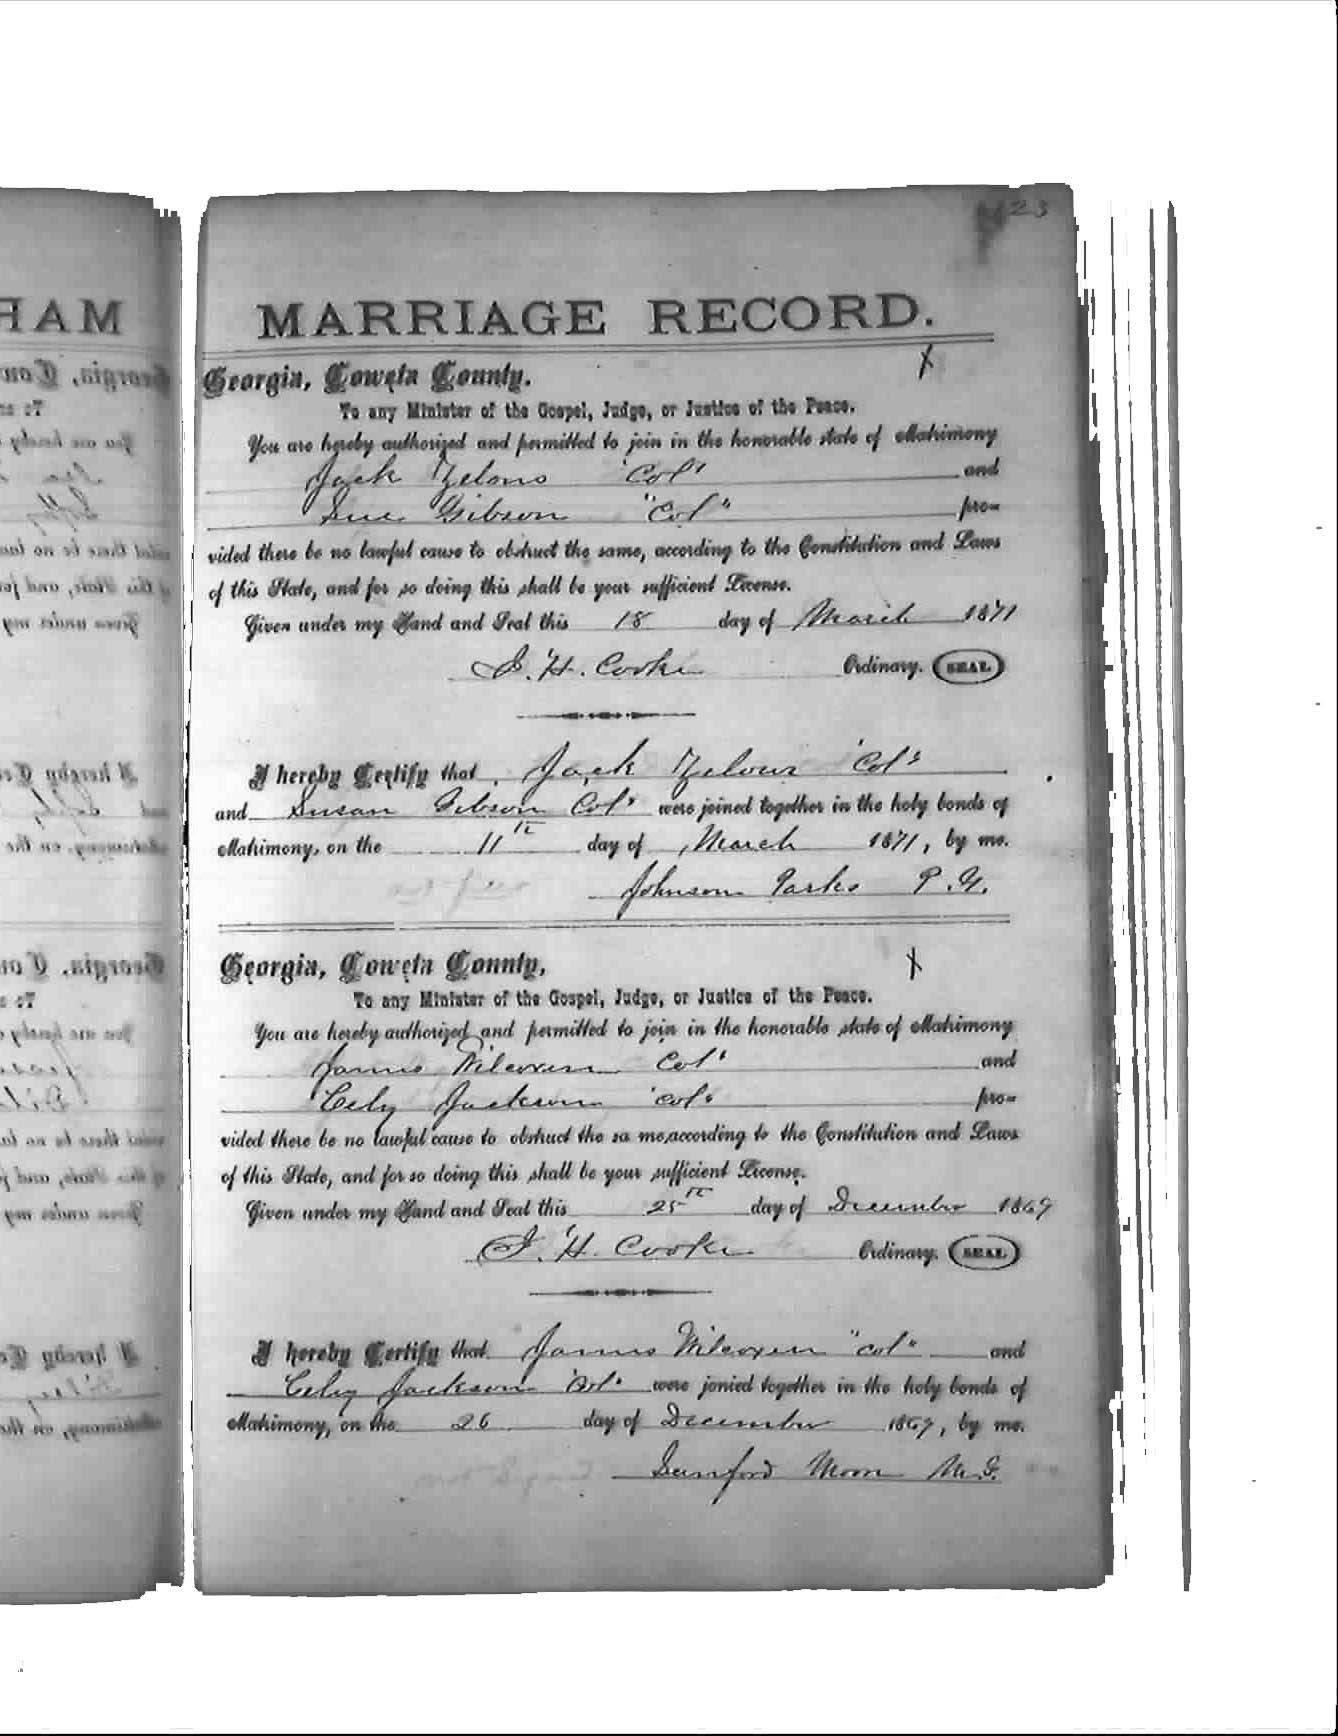 23
MARRIAGE RECORD.
Georgia, Coweta County.
To any Minister of the Gospel, Judge, or Justice of the Peace.
You are hereby authorized and permitted to join in the honorable state of Matrimony
Jack "Col" and
Sue Gibson "Col" pro-
vided there be no lawful cause to obstruct the same, according to the Constitution and Laws
of this State, and for so doing this shall be your sufficient License.
Given under my Hand and Seal this 18 day of March 1871
J. H. Cooke Ordinary. SEAL
I hereby Certify that Jack "Col"
and Susan Gibson Col" were joined together in the holy bonds of
Matrimony, on the 11th day of March 1871, by me.
Johnson Parks P. G.
Georgia, Coweta County,
To any Minister of the Gospel, Judge, or Justice of the Peace.
You are hereby authorized and permitted to join in the honorable state of Matrimony
James Wilcoxen Col" and
Cely Jackson "Col" pro-
vided there be no lawful cause to obstruct the sa me,according to the Constitution and Laws
of this State, and for so doing this shall be your sufficient License.
Given under my Hand and Seal this 25th day of December 1869
J. H. Cooke Ordinary. SEAL
I hereby Certify that James Wilcoxen "Col" and
Cely Jackson "Col" were jonied together in the holy bonds of
Matrimony, on the 26 day of December 1869, by me.
Sanford Moon M. G.